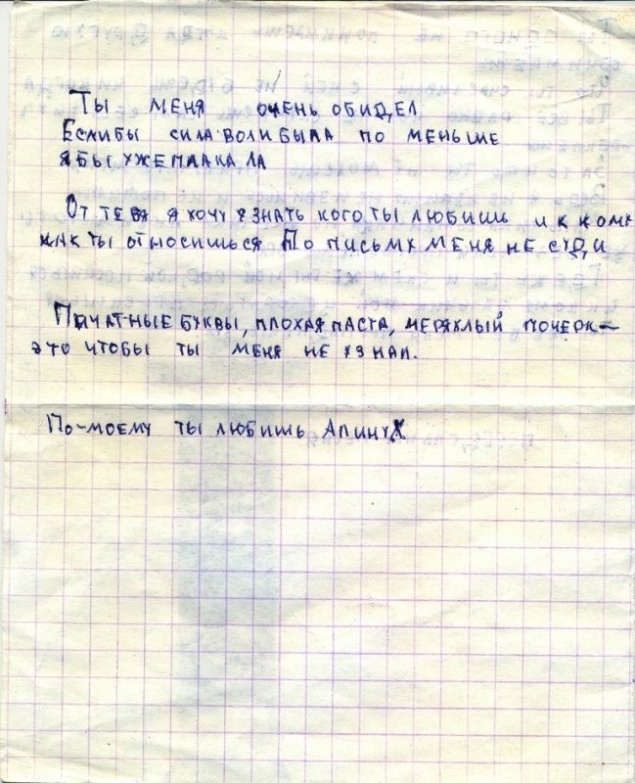 Ты меня очень обидел
Еслибы сила воли была по меньше
ябы уже плакала
От тебя я хочу узнать кого ты любишь и к кому
как ты относишься По письму меня не суди
Печатные буквы, плохая паста, неряхлый почерк—
это чтобы ты меня не узнал.
По-моему ты любишь Алину